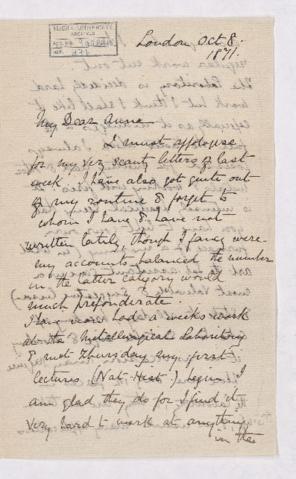 London Oct 8.
1871.
My Dear Anna
I must apologise
for my very scant letters of last
week. I have also got quite out
of my routine & forget to
whom I have & have not
written lately, though I fancy were
my accounts balanced the number
in the latter category would
much preponderate.
I have now had a weeks work
at the Metallurgical Laboratory
& next Thursday my first
lectures (Nat. Hist.) begin. I
am glad they do for I find it
very hard to work at anything
in the